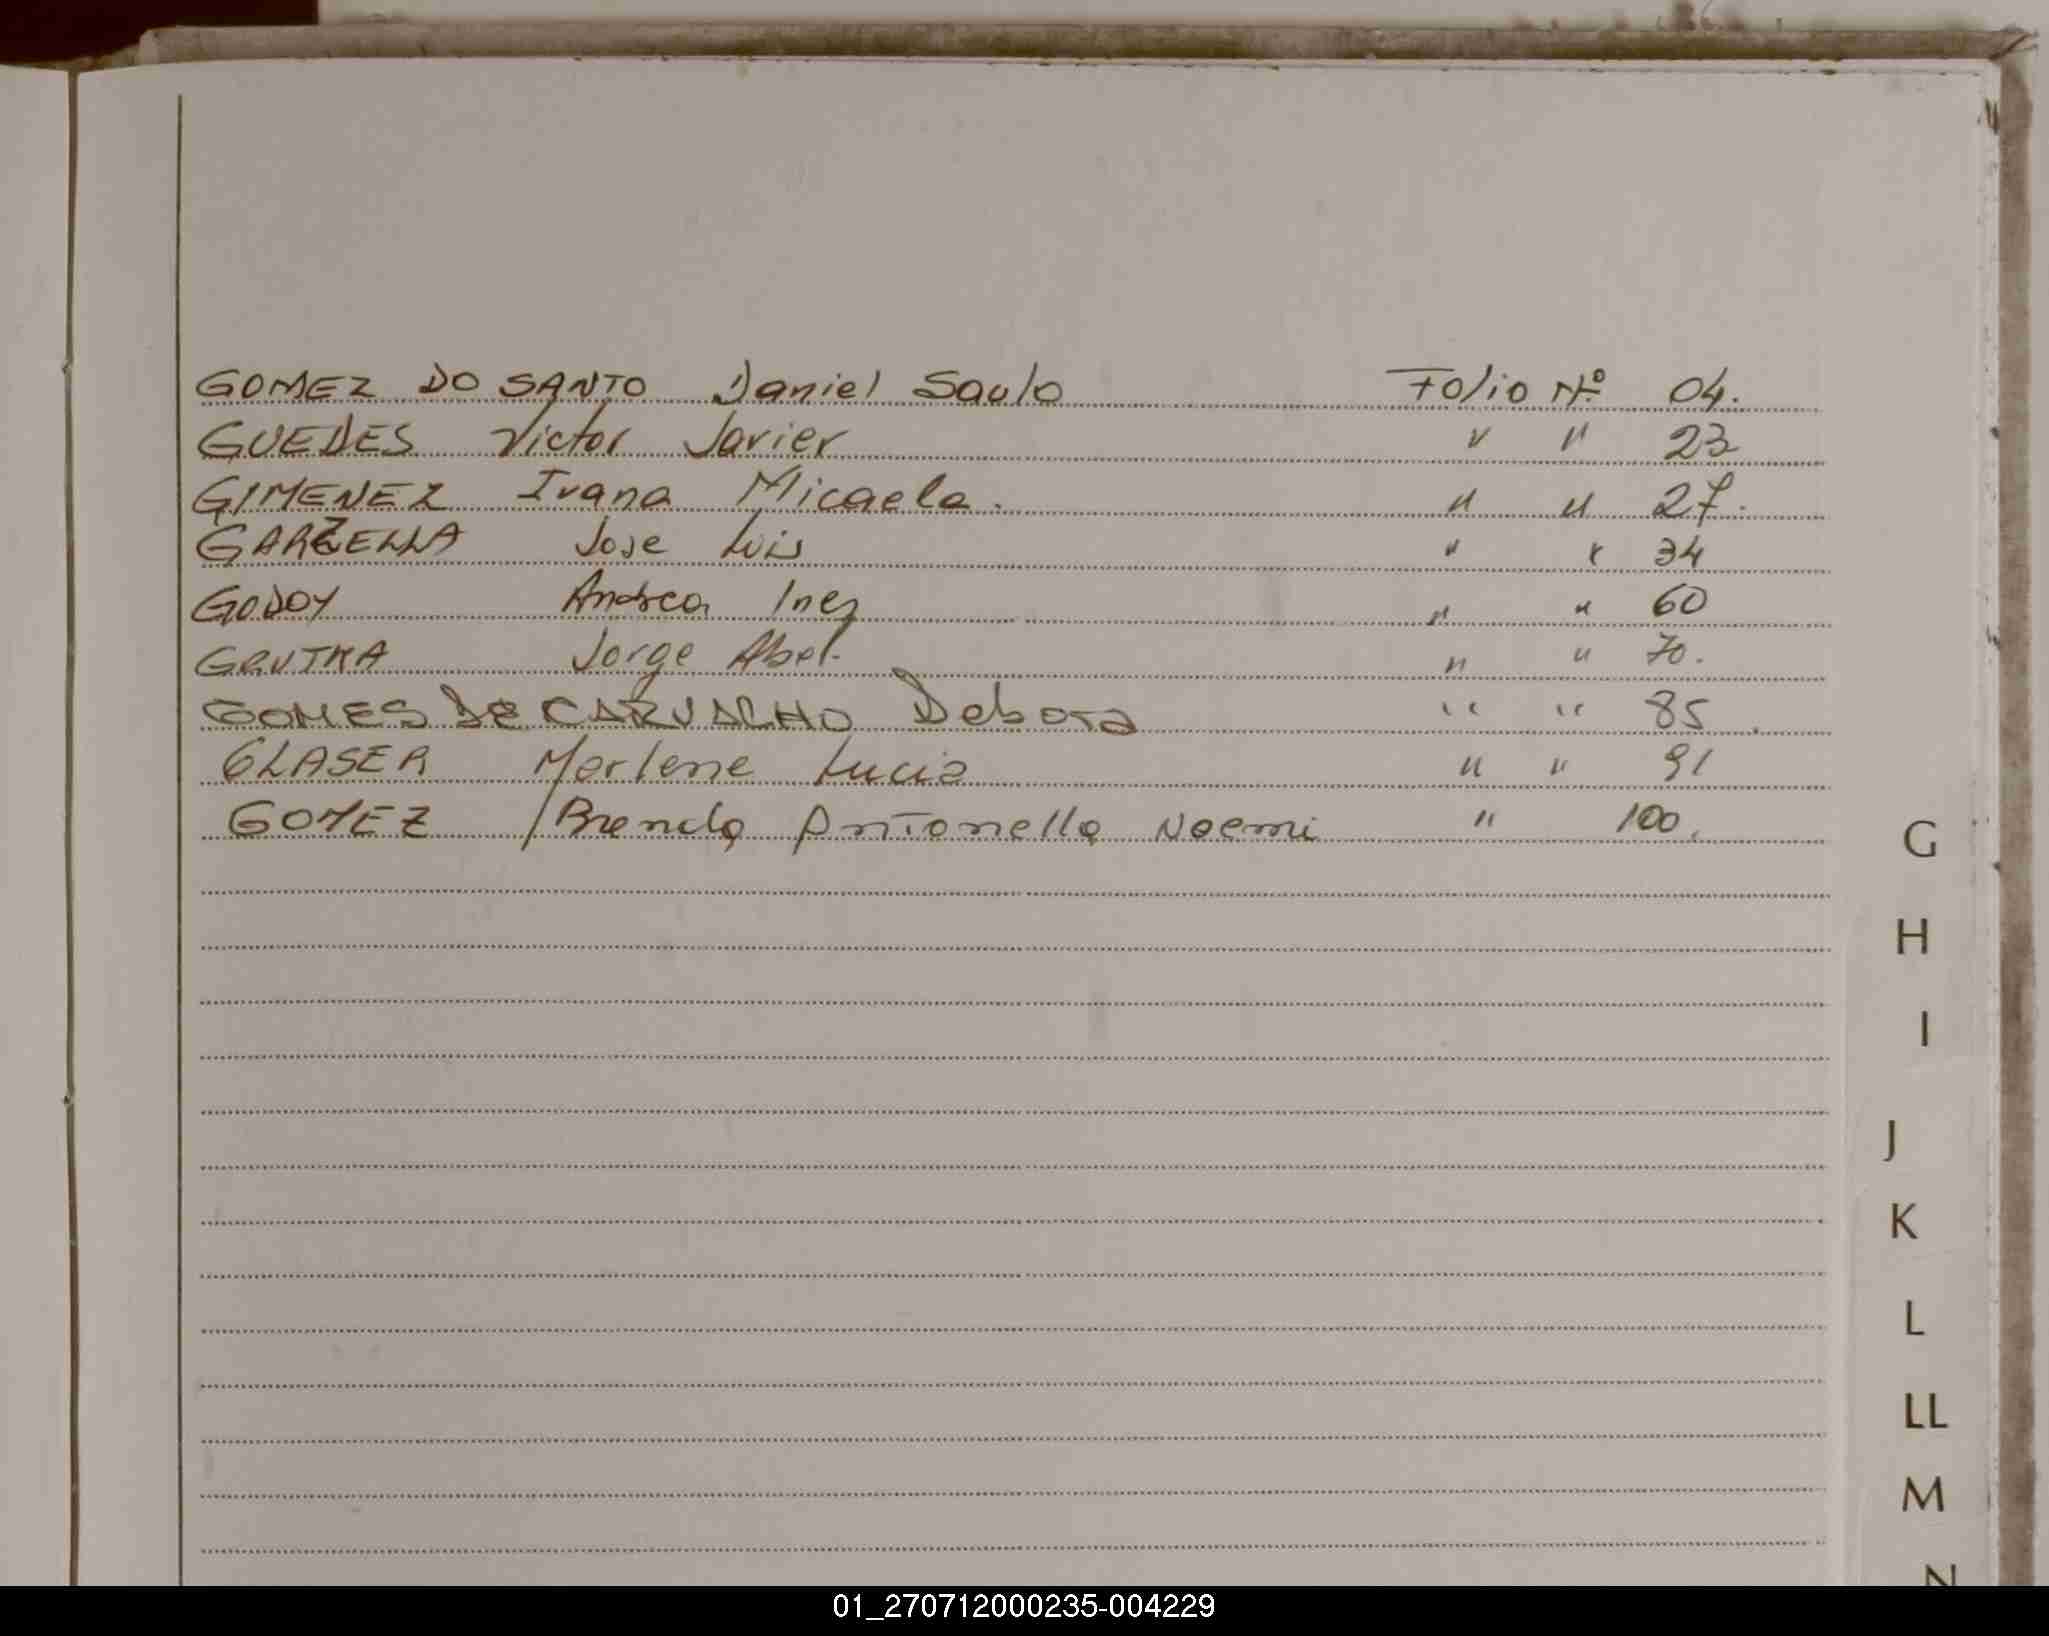 GOMEZ DO SANTO Daniel Saulo Folio Nº 04.
GUEDES Victor Javier " " 23
GIMENEZ Ivana Micaela. " " 27.
GARZELLA Jose Luis " " 34
GODOY Andrea Inez " " 60
GRUTKA Jorge Abel. " " 70.
GOMES DE CARVALHO Debora " " 85.
GLASER Marlene Lucia " " 91
GOMEZ Brenda Antonella Noemi " 100.
G
H
I
J
K
L
LL
M
N
01_270712000235-004229